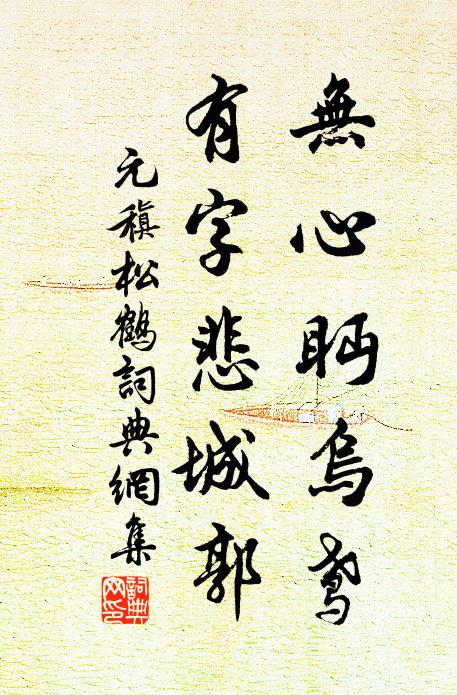 無心眄烏鳶
有字悲城郭
元稹松鶴詞典網集
詞典
網印